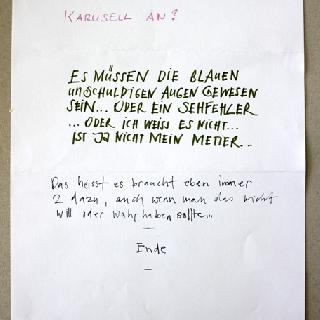 KARUSELL AN?
ES MÜSSEN DIE BLAUEN
UNSCHULDIGEN AUGEN GEWESEN
SEIN... ODER EIN SEHFEHLER
... ODER ICH WEISS ES NICHT...
IST JA NICHT MEIN METIER..
Das heisst es braucht eben immer
2 dazu, auch wenn man das nicht
will oder wahr haben sollte...
—
Ende
—